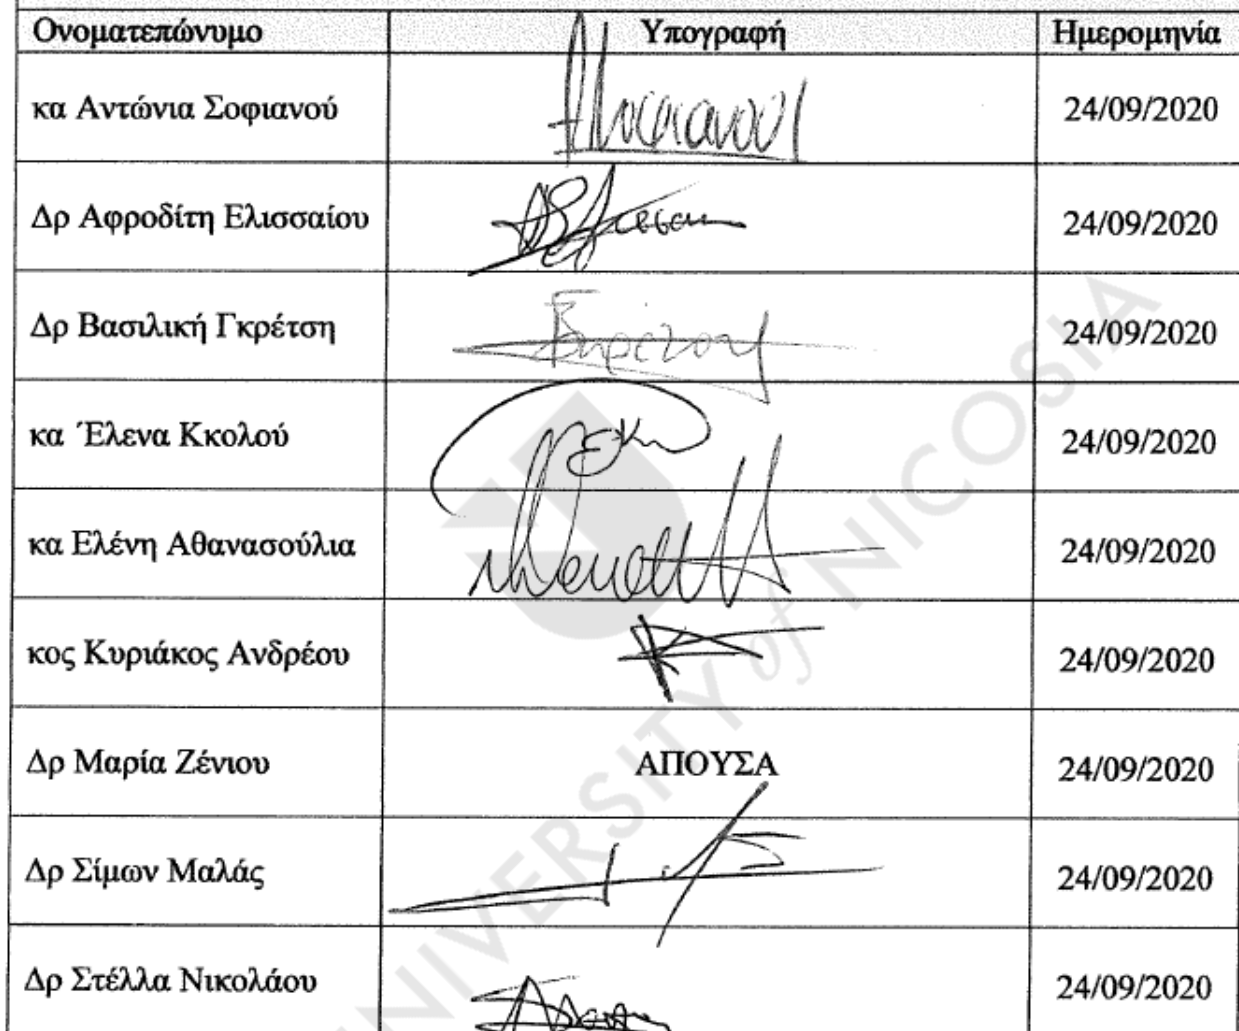 Ονοματεπώνυμο Υπογραφή Ημερομηνία
κα Αντώνια Σοφιανού 24/09/2020
Δρ Αφροδίτη Ελισσαίου 24/09/2020
Δρ Βασιλική Γκρέτση 24/09/2020
κα Έλενα Κκολού 24/09/2020
κα Ελένη Αθανασούλια 24/09/2020
κος Κυριάκος Ανδρέου 24/09/2020
Δρ Μαρία Ζένιου ΑΠΟΥΣΑ 24/09/2020
Δρ Σίμων Μαλάς 24/09/2020
Δρ Στέλλα Νικολάου 24/09/2020
UNIVERSITY of NICOSIA